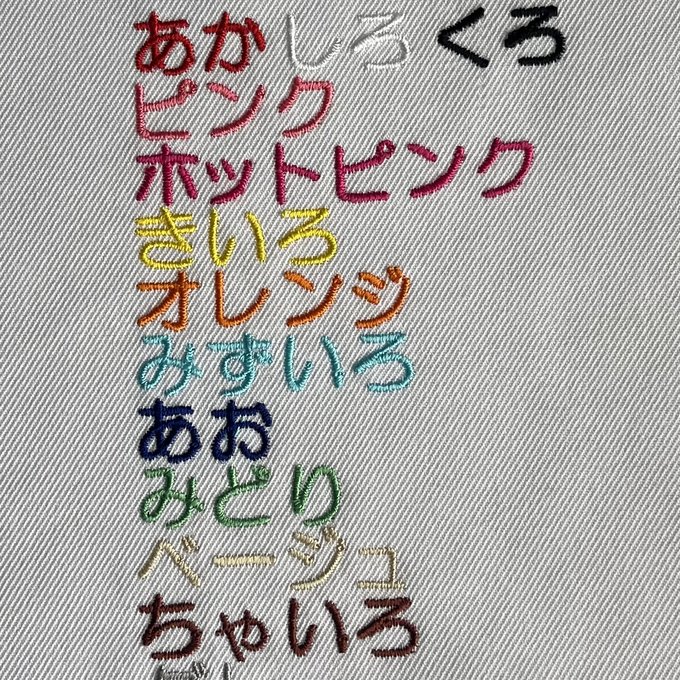 あか しろ くろ
ピンク
ホットピンク
きいろ
オレンジ
みずいろ
あお
みどり
ベージュ
ちゃいろ